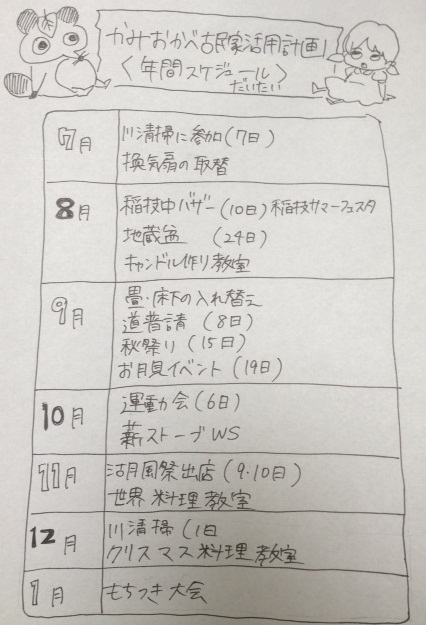 かみおかべ古民家活用計画
〈年間スケジュール〉
だいたい
7月
川清掃に参加(7日)
換気扇の取替
8月
稲枝中バザー(10日)稲枝サマーフェスタ
地蔵盆 (24日)
キャンドル作り教室
9月
畳・床下の入れ替え
道普請 (8日)
秋祭り (15日)
お月見イベント(19日)
10月
運動会(6日)
薪ストーブWS
11月
湖風祭出店(9・10日)
世界料理教室
12月
川清掃(1日
クリスマス料理教室
1月
もちつき大会